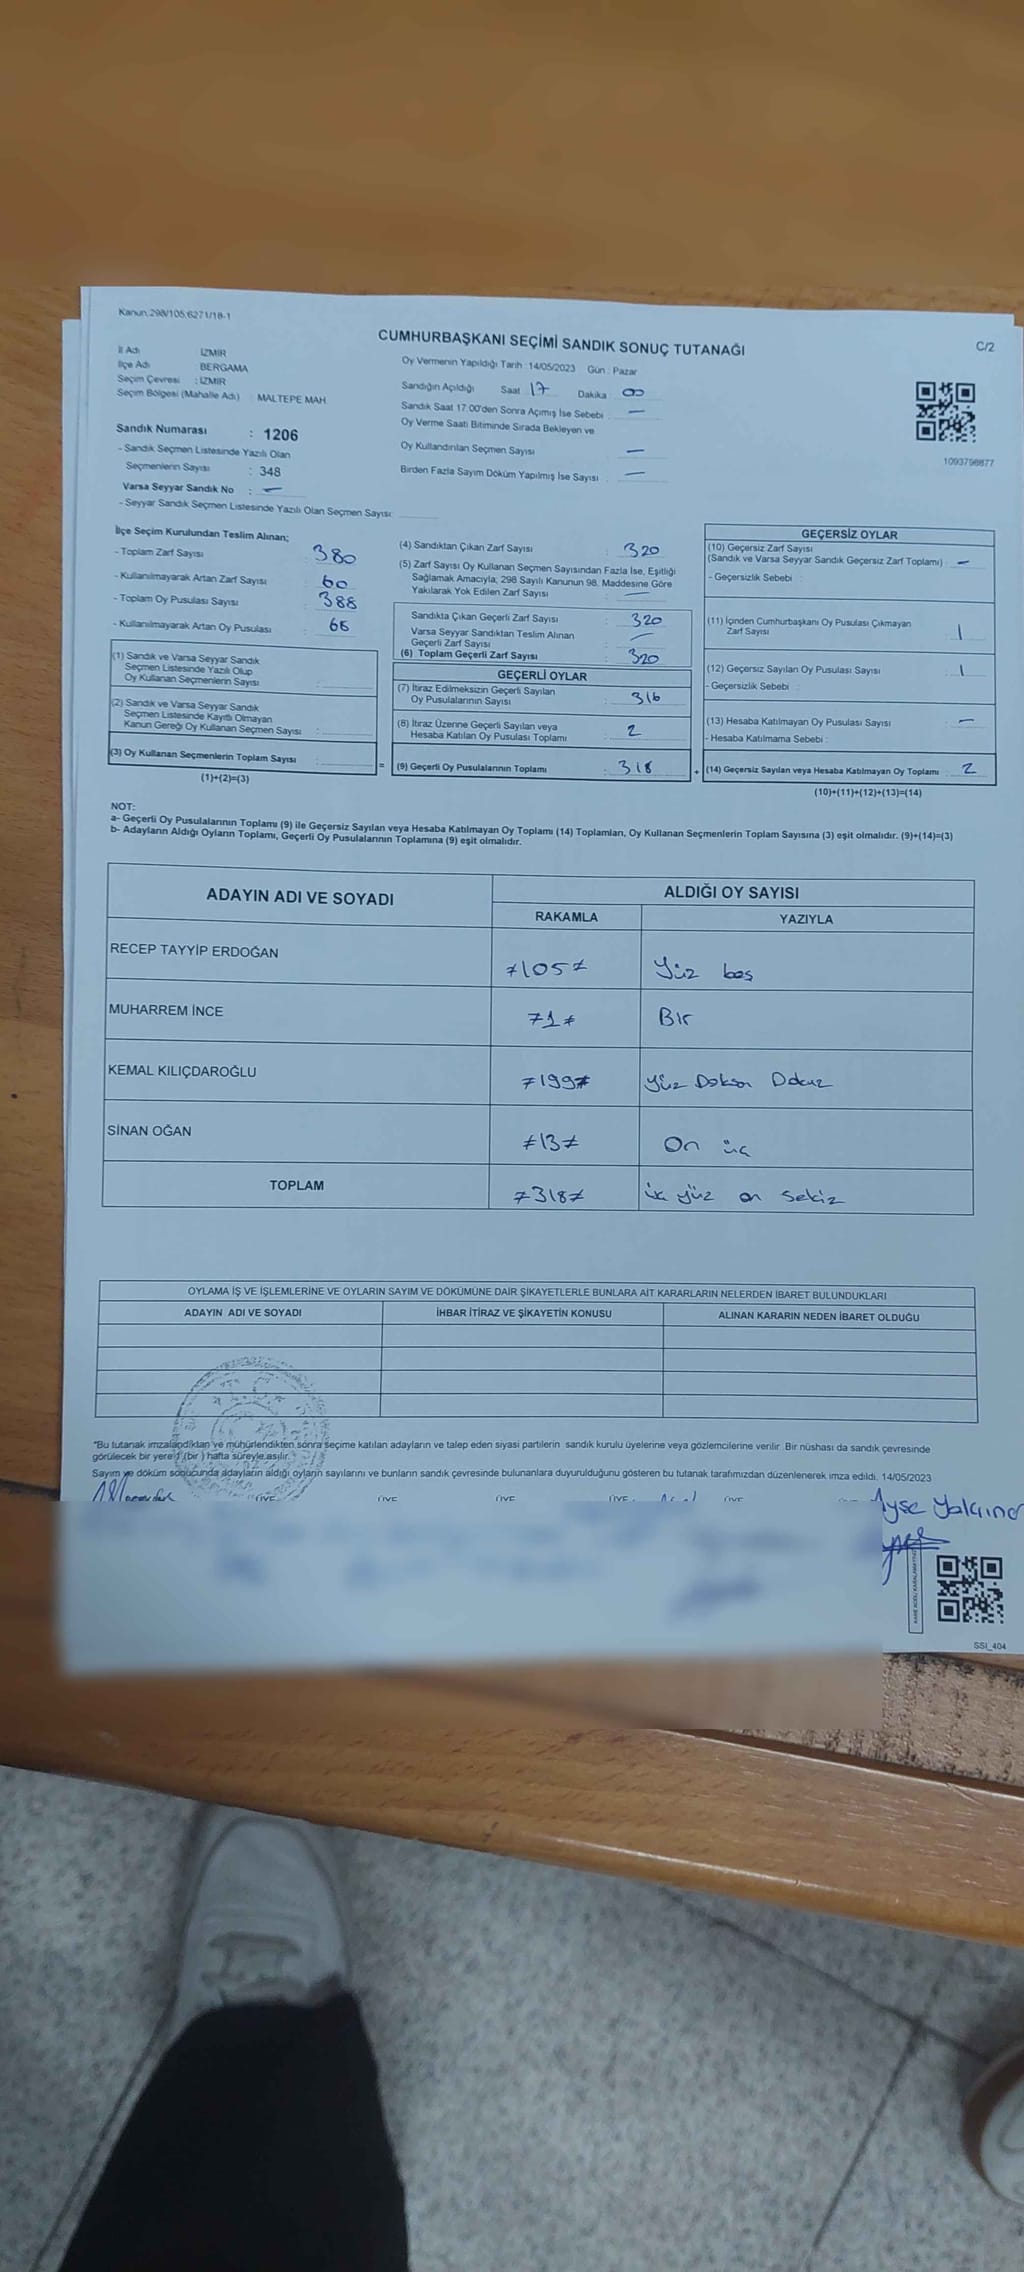 Kanun.298/105:6271/18-1
CUMHURBAŞKANI SEÇİMİ SANDIK SONUÇ TUTANAĞI
C/2
İl Adı İZMİR
İlçe Adı BERGAMA
Seçim Çevresi : İZMİR
Seçim Bölgesi (Mahalle Adı) : MALTEPE MAH
Sandık Numarası : 1206
- Sandık Seçmen Listesinde Yazılı Olan
Seçmenlerin Sayısı : 348
Varsa Seyyar Sandık No : -
- Seyyar Sandık Seçmen Listesinde Yazılı Olan Seçmen Sayısı:
Oy Vermenin Yapıldığı Tarih : 14/05/2023 Gün : Pazar
Sandığın Açıldığı Saat 17 Dakika 00
Sandık Saat 17:00'den Sonra Açımış İse Sebebi : -
Oy Verme Saati Bitiminde Sırada Bekleyen ve
Oy Kullandırılan Seçmen Sayısı : -
Birden Fazla Sayım Döküm Yapılmış İse Sayısı : -
1093798877
İlçe Seçim Kurulundan Teslim Alınan;
- Toplam Zarf Sayısı : 380
- Kullanılmayarak Artan Zarf Sayısı : 60
- Toplam Oy Pusulası Sayısı : 388
- Kullanılmayarak Artan Oy Pusulası : 68
(1) Sandık ve Varsa Seyyar Sandık
Seçmen Listesinde Yazılı Olup
Oy Kullanan Seçmenlerin Sayısı :
(2) Sandık ve Varsa Seyyar Sandık
Seçmen Listesinde Kayıtlı Olmayan
Kanun Gereği Oy Kullanan Seçmen Sayısı :
(3) Oy Kullanan Seçmenlerin Toplam Sayısı :
(1)+(2)=(3)
(4) Sandıktan Çıkan Zarf Sayısı : 320
(5) Zarf Sayısı Oy Kullanan Seçmen Sayısından Fazla İse, Eşitliği
Sağlamak Amacıyla; 298 Sayılı Kanunun 98. Maddesine Göre
Yakılarak Yok Edilen Zarf Sayısı : -
Sandıkta Çıkan Geçerli Zarf Sayısı : 320
Varsa Seyyar Sandıktan Teslim Alınan
Geçerli Zarf Sayısı : -
(6) Toplam Geçerli Zarf Sayısı : 320
GEÇERLİ OYLAR
(7) İtiraz Edilmeksizin Geçerli Sayılan
Oy Pusulalarının Sayısı : 316
(8) İtiraz Üzerine Geçerli Sayılan veya
Hesaba Katılan Oy Pusulası Toplamı : 2
= (9) Geçerli Oy Pusulalarının Toplamı : 318
GEÇERSİZ OYLAR
(10) Geçersiz Zarf Sayısı
(Sandık ve Varsa Seyyar Sandık Geçersiz Zarf Toplamı) : -
- Geçersizlik Sebebi :
(11) İçinden Cumhurbaşkanı Oy Pusulası Çıkmayan
Zarf Sayısı : 1
(12) Geçersiz Sayılan Oy Pusulası Sayısı : 1
- Geçersizlik Sebebi :
(13) Hesaba Katılmayan Oy Pusulası Sayısı : -
- Hesaba Katılmama Sebebi :
+ (14) Geçersiz Sayılan veya Hesaba Katılmayan Oy Toplamı : 2
(10)+(11)+(12)+(13)=(14)
NOT:
a- Geçerli Oy Pusulalarının Toplamı (9) ile Geçersiz Sayılan veya Hesaba Katılmayan Oy Toplamı (14) Toplamları, Oy Kullanan Seçmenlerin Toplam Sayısına (3) eşit olmalıdır. (9)+(14)=(3)
b- Adayların Aldığı Oyların Toplamı, Geçerli Oy Pusulalarının Toplamına (9) eşit olmalıdır.
ADAYIN ADI VE SOYADI ALDIĞI OY SAYISI
RAKAMLA YAZIYLA
RECEP TAYYİP ERDOĞAN ≠105≠ Yüz beş
MUHARREM İNCE ≠1≠ Bir
KEMAL KILIÇDAROĞLU ≠199≠ Yüz Doksan Dokuz
SİNAN OĞAN ≠13≠ On üç
TOPLAM ≠318≠ yüz on sekiz
OYLAMA İŞ VE İŞLEMLERİNE VE OYLARIN SAYIM VE DÖKÜMÜNE DAİR ŞİKAYETLERLE BUNLARA AİT KARARLARIN NELERDEN İBARET BULUNDUKLARI
ADAYIN ADI VE SOYADI İHBAR İTİRAZ VE ŞİKAYETİN KONUSU ALINAN KARARIN NEDEN İBARET OLDUĞU
*Bu tutanak imzalandıktan ve mühürlendikten sonra seçime katılan adayların ve talep eden siyasi partilerin sandık kurulu üyelerine veya gözlemcilerine verilir. Bir nüshası da sandık çevresinde
görülecek bir yere 1 (bir ) hafta süreyle asılır.
Sayım ve döküm sonucunda adayların aldığı oyların sayılarını ve bunların sandık çevresinde bulunanlara duyurulduğunu gösteren bu tutanak tarafımızdan düzenlenerek imza edildi. 14/05/2023
ÜYE ÜYE ÜYE ÜYE ÜYE
Ayşe Yalçıner
SSI_404